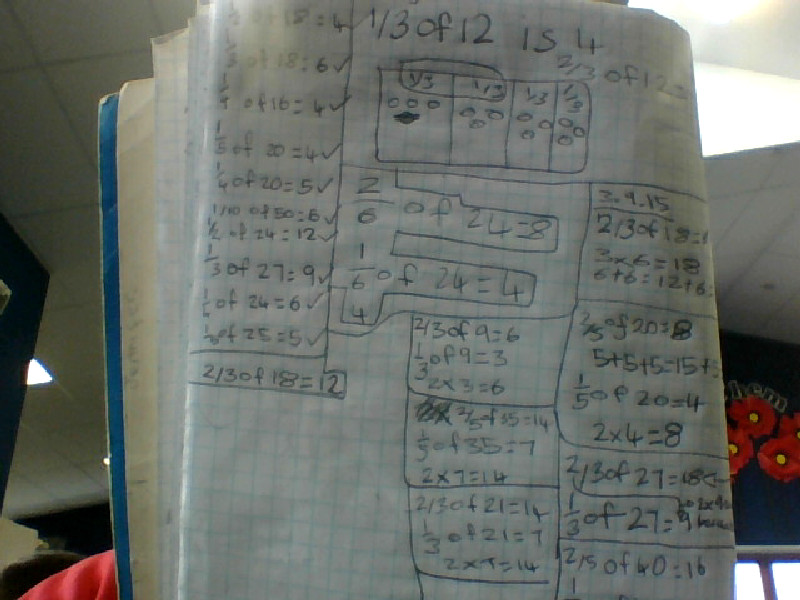 of 18=4
1/3 of 18=6 ✓
of 16=4 ✓
1/5 of 20=4 ✓
1/4 of 20=5 ✓
1/10 of 50=6 ✓
1/2 of 24=12 ✓
1/3 of 27=9 ✓
of 24=6 ✓
of 25=5 ✓
2/3 of 18=12
1/3 of 12 is 4
2/3 of 12=
1/3 1/3 1/3 1/3
2/6 of 24=8
1/6 of 24=4
4
2/3 of 9=6
1/3 of 9=3
2x3=6
2/5 of 35=14
1/5 of 35=7
2x7=14
2/3 of 21=14
1/3 of 21=7
2x7=14
3.9.15
2/3 of 18=
3x6=18
6+6=12+6
2/5 of 20=8
5+5+5=15+
1/5 of 20=4
2x4=8
2/3 of 27=18
1/3 of 27=9
2/5 of 40=16